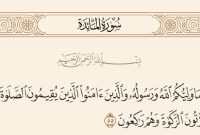 سُورَةُ المَائِدَة
بِسْمِ اللَّهِ الرَّحْمَٰنِ الرَّحِيمِ
مَا وَلِيُّكُمُ اللَّهُ وَرَسُولُهُ وَالَّذِينَ ءَامَنُوا الَّذِينَ يُقِيمُونَ الصَّلَوٰةَ
ؤْتُونَ الزَّكَوٰةَ وَهُمْ رَٰكِعُونَ ٥٥